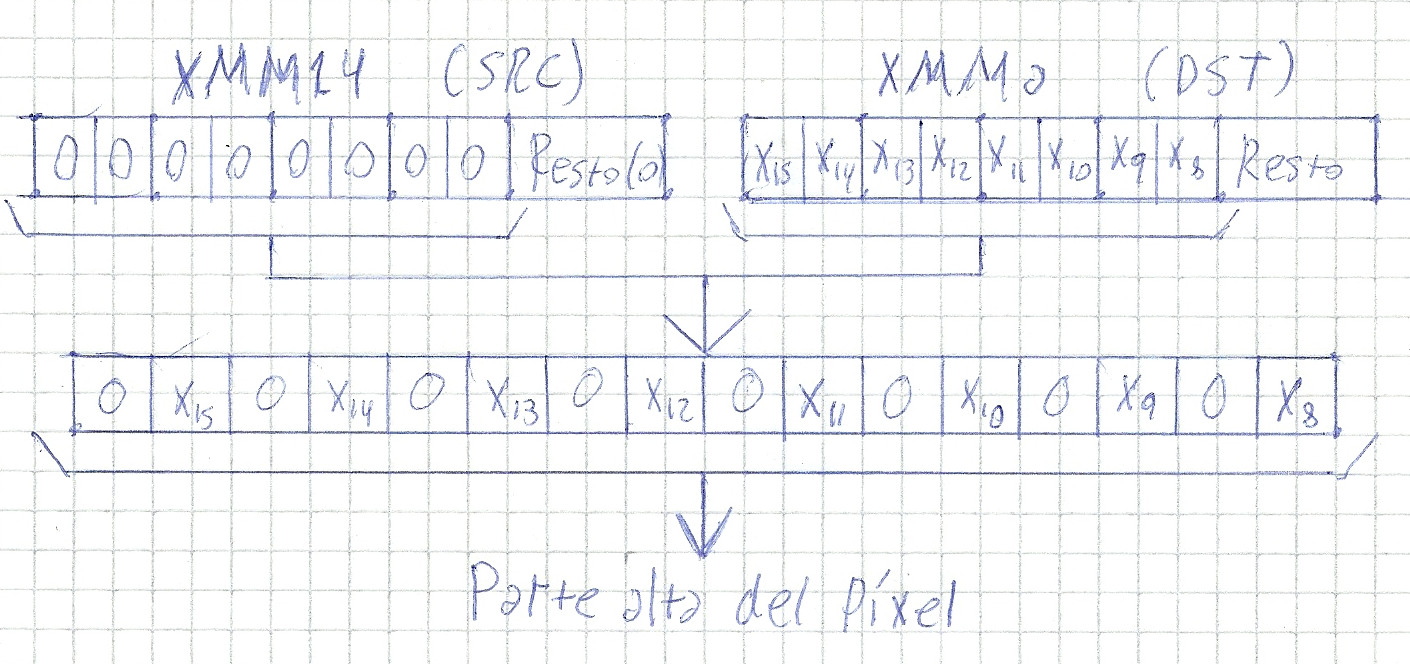 XMM14 (SRC) XMM0 (DST)
0 0 0 0 0 0 0 0 Resto(0) X15 X14 X13 X12 X11 X10 X9 X8 Resto
0 X15 0 X14 0 X13 0 X12 0 X11 0 X10 0 X9 0 X8
Parte alta del píxel